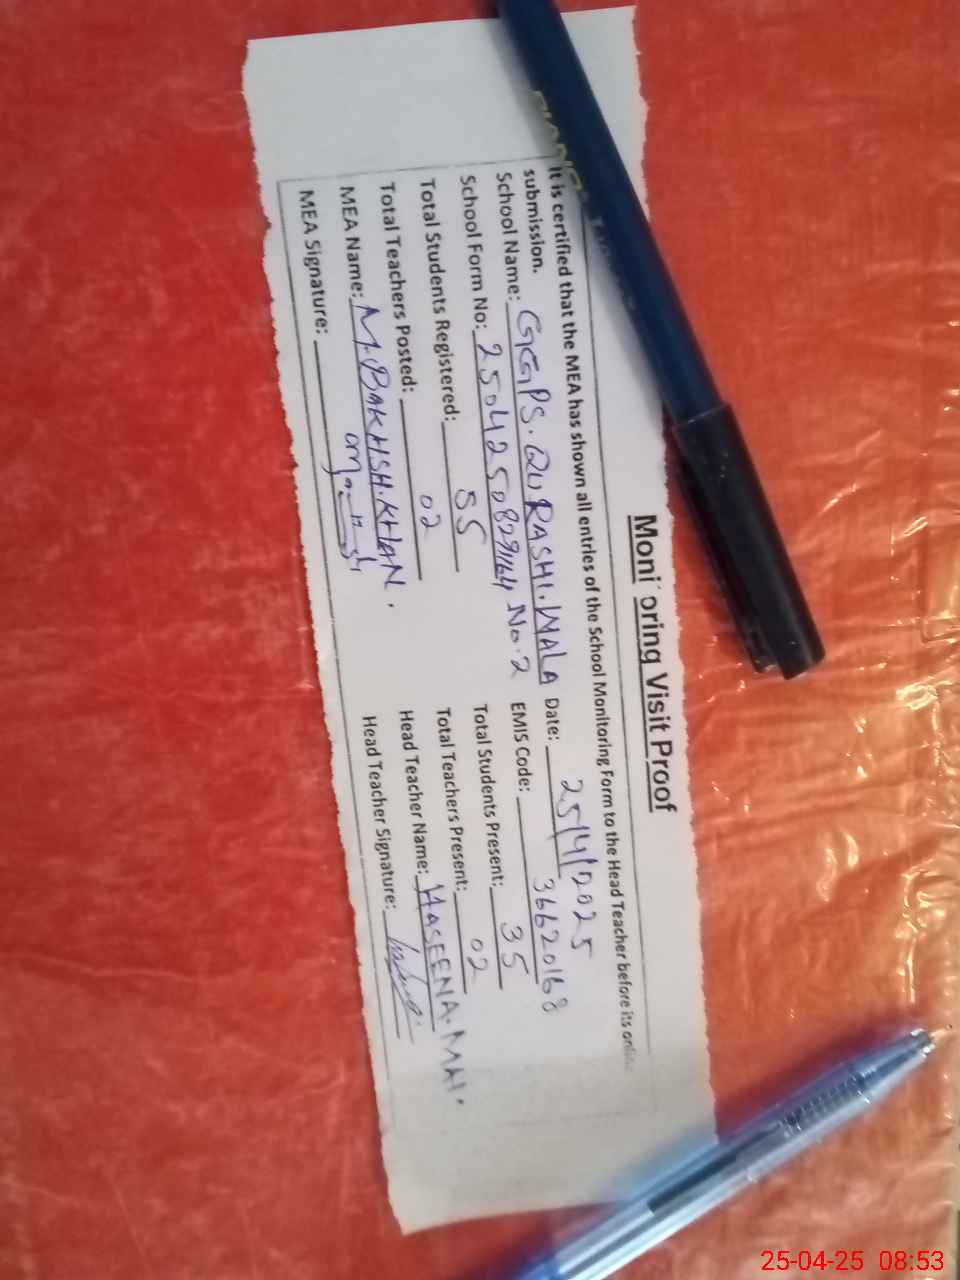 Monitoring Visit Proof
It is certified that the MEA has shown all entries of the School Monitoring Form to the Head Teacher before its online
submission.
School Name: GGPS. QURASHI. WALA Date: 25/4/2025
No. 2
School Form No: EMIS Code: 36620168
Total Students Registered: 55 Total Students Present: 35
Total Teachers Posted: 02 Total Teachers Present: 02
MEA Name: M. BAKHSH. KHAN. Head Teacher Name: HASEENA. MAI.
MEA Signature: Head Teacher Signature:
25-04-25 08:53